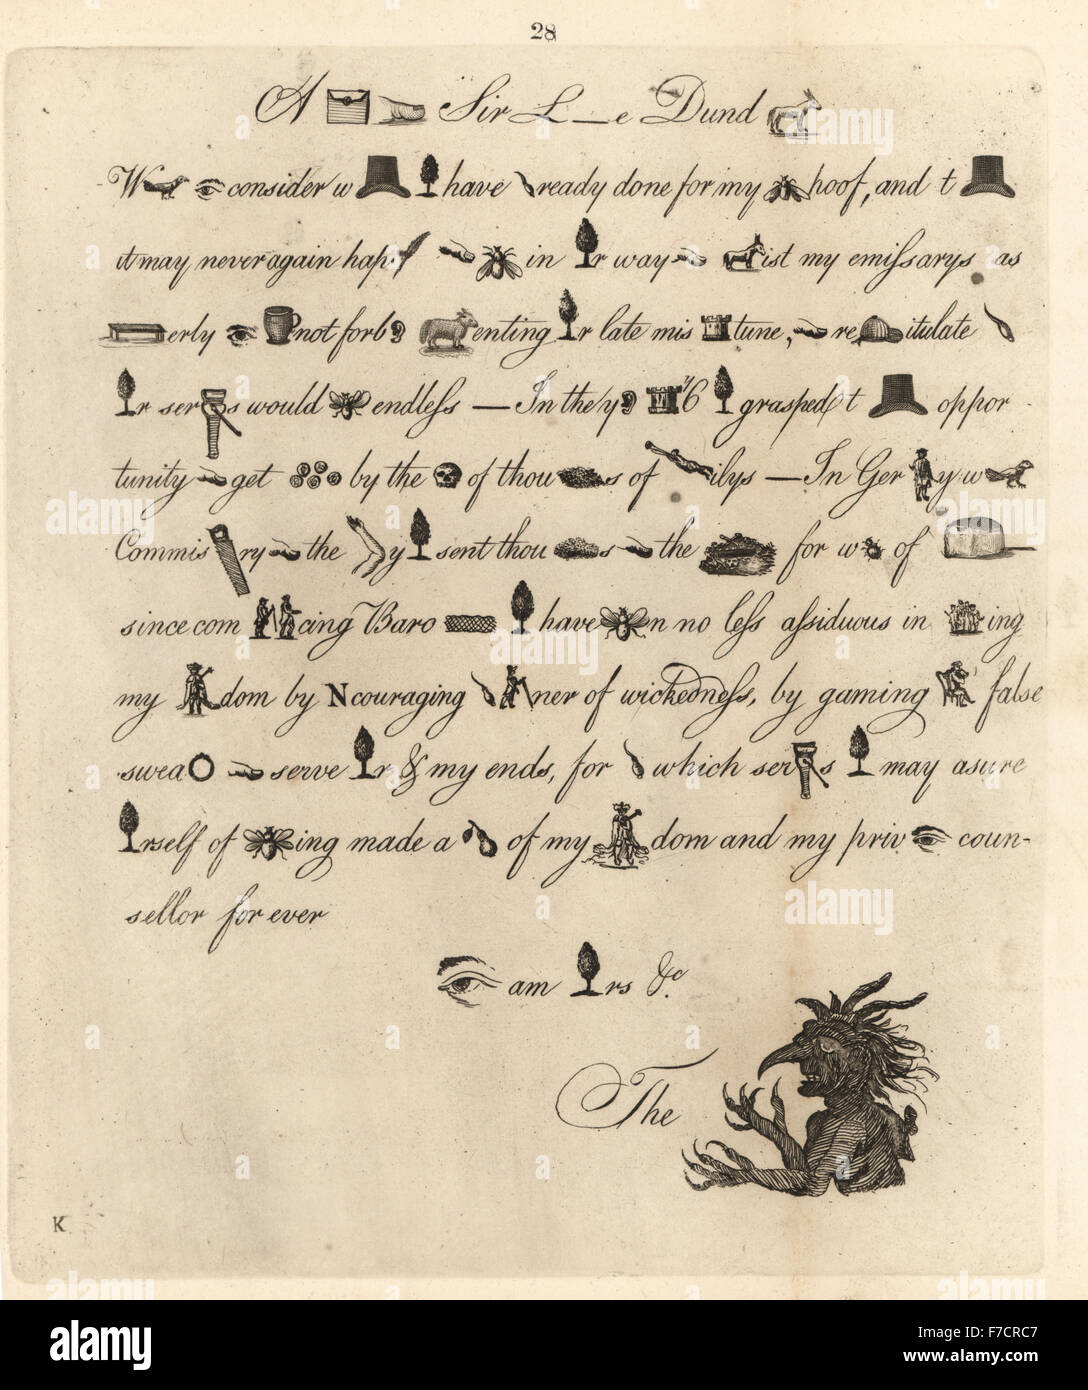 28
A Sir L—e Dund
W consider w have ready done for my hoof, and t
it may never again hap in r way ist my emissarys as
erly not forb enting r late mis tune, re itulate
r ser s would endless — In the y 6 grasped t oppor
tunity get by the of thou s of ilys — In Ger y w
Commis ry the y sent thou s the for w of
since com cing Baro have n no less assiduous in ing
my dom by Ncouraging ner of wickedness, by gaming false
swea serve r & my ends, for which ser s may asure
rself of ing made a of my dom and my priv coun-
sellor for ever
am rs &c.
The
K
alamy
alamy stock photo
F7CRC7
www.alamy.com